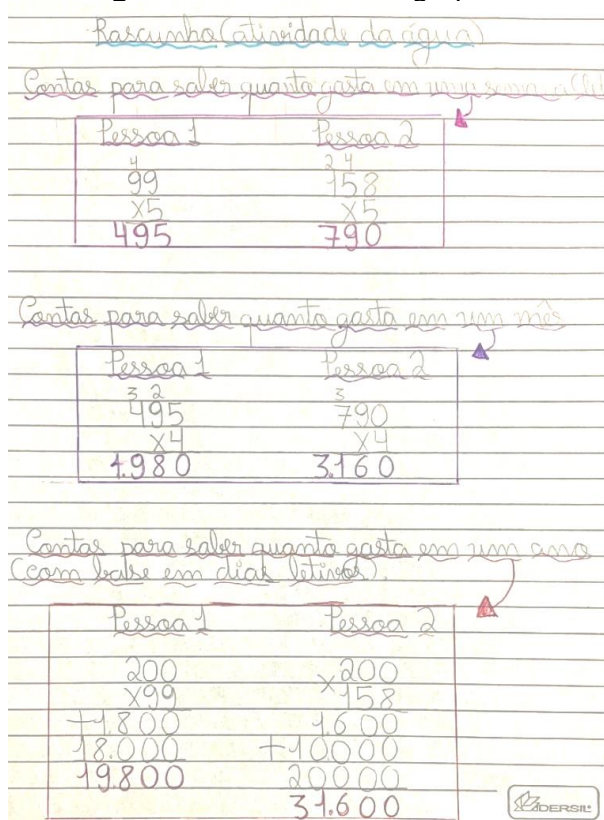 Rascunho (atividade da água)
Contas para saber quanto gasta em uma
Pessoa 1 Pessoa 2
4 2 4
99 158
x5 x5
495 790
Contas para saber quanto gasta em um mês
Pessoa 1 Pessoa 2
3 2 3
495 790
x4 x4
1.980 3.160
Contas para saber quanto gasta em um ano
(com base em dias letivos).
Pessoa 1 Pessoa 2
200 200
x99 x158
+1.800 1.600
18.000 +10.000
19.800 20000
31.600
DERSIL